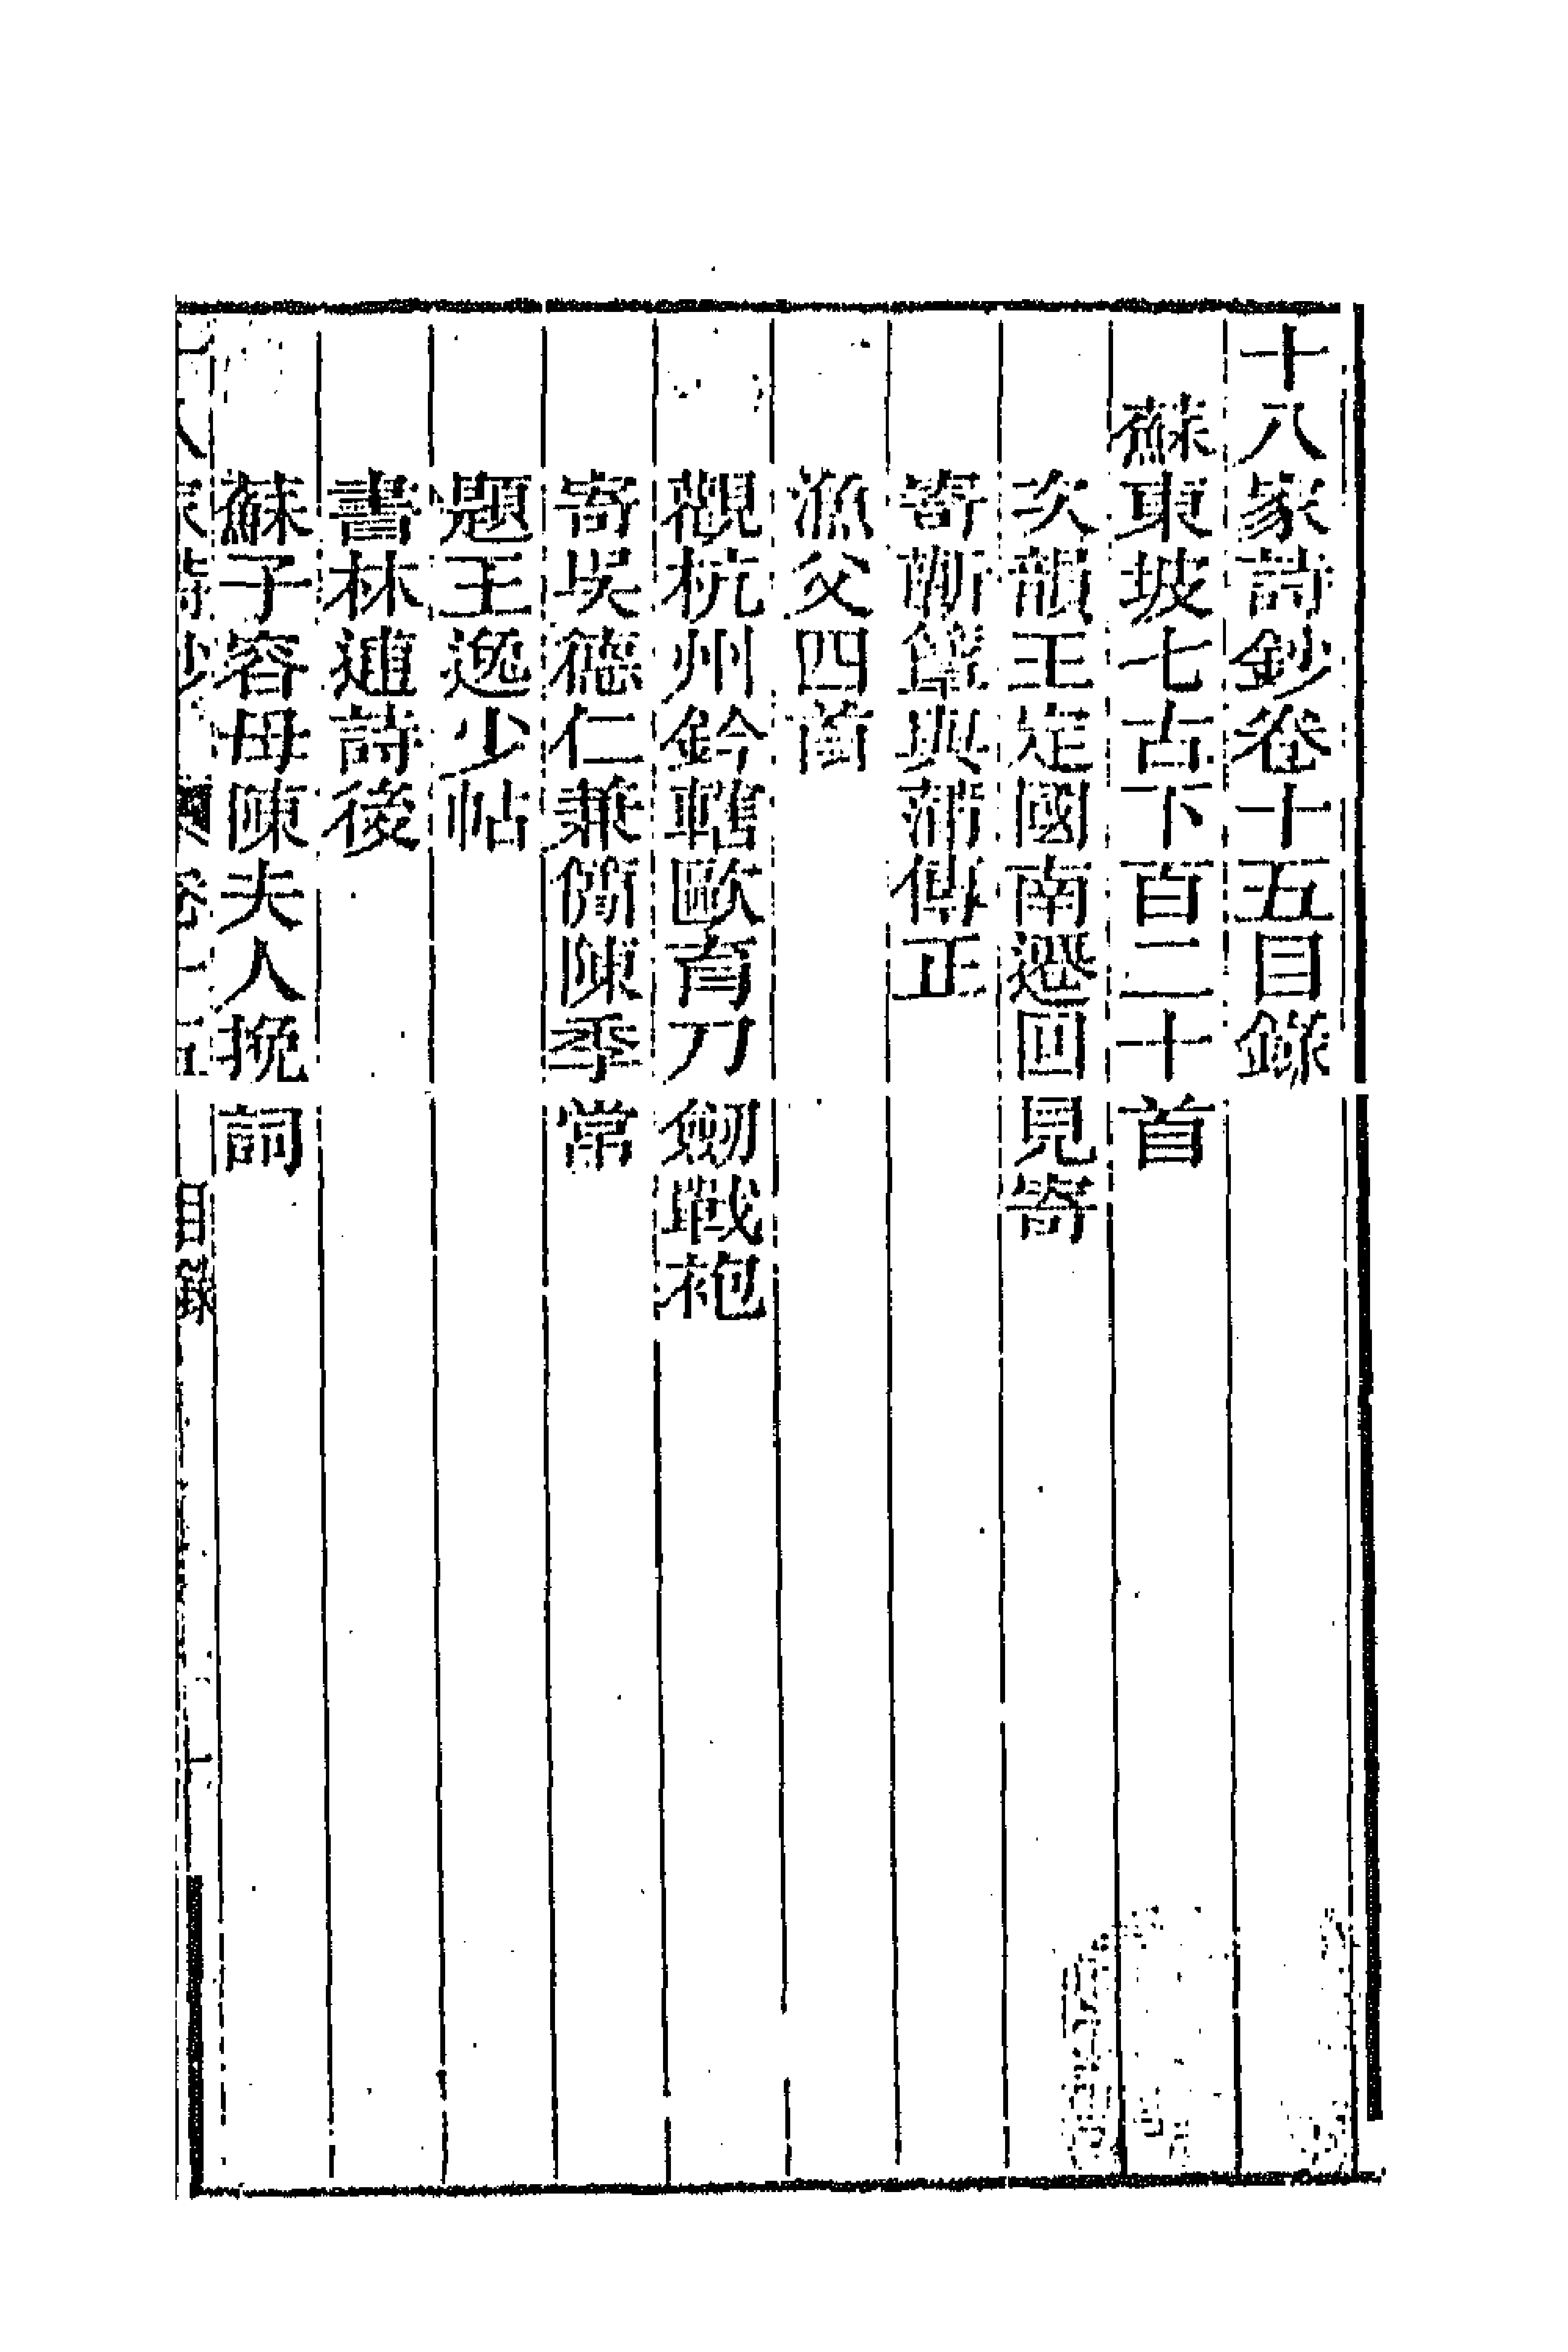 十八家詩鈔卷十五目錄
蘇東坡七古下百二十首
次韻王定國南遷回見寄
寄蘄簟與蒲傳正
漁父四首
觀杭州鈐轄歐育刀劒戰袍
寄吳德仁兼簡陳季常
題王逸少帖
書林逋詩後
蘇子容母陳夫人挽詞
十八家詩鈔 卷十五 目錄 一